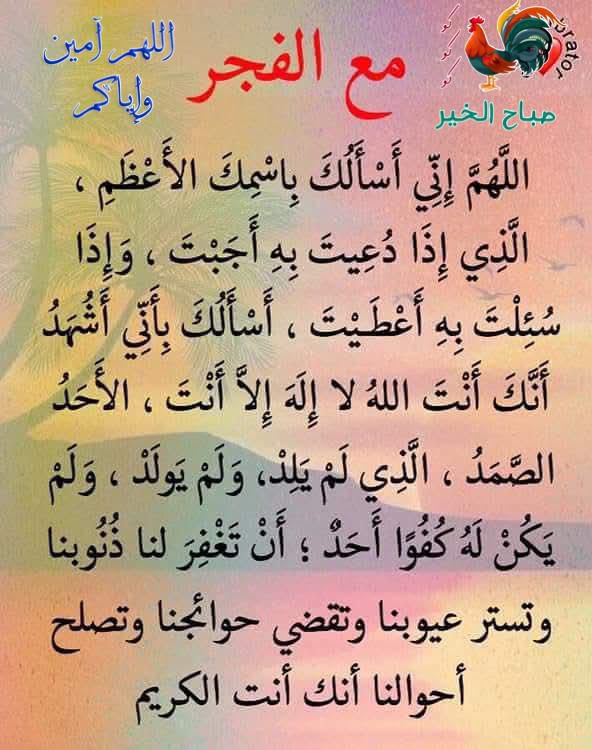 صباح الخير
كو
كو
كو
مع الفجر
اللهم آمين
وإياكم
اللَّهُمَّ إِنِّي أَسْأَلُكَ بِاسْمِكَ الأَعْظَمِ ،
الَّذِي إِذَا دُعِيتَ بِهِ أَجَبْتَ ، وَإِذَا
سُئِلْتَ بِهِ أَعْطَيْتَ ، أَسْأَلُكَ بِأَنِّي أَشْهَدُ
أَنَّكَ أَنْتَ اللهُ لا إِلَهَ إِلاَّ أَنْتَ ، الأَحَدُ
الصَّمَدُ ، الَّذِي لَمْ يَلِدْ، وَلَمْ يَولَدْ ، وَلَمْ
يَكُنْ لَهُ كُفُوًا أَحَدٌ ؛ أَنْ تَغْفِرَ لنا ذُنُوبنا
وتستر عيوبنا وتقضي حوائجنا وتصلح
أحوالنا أنك أنت الكريم